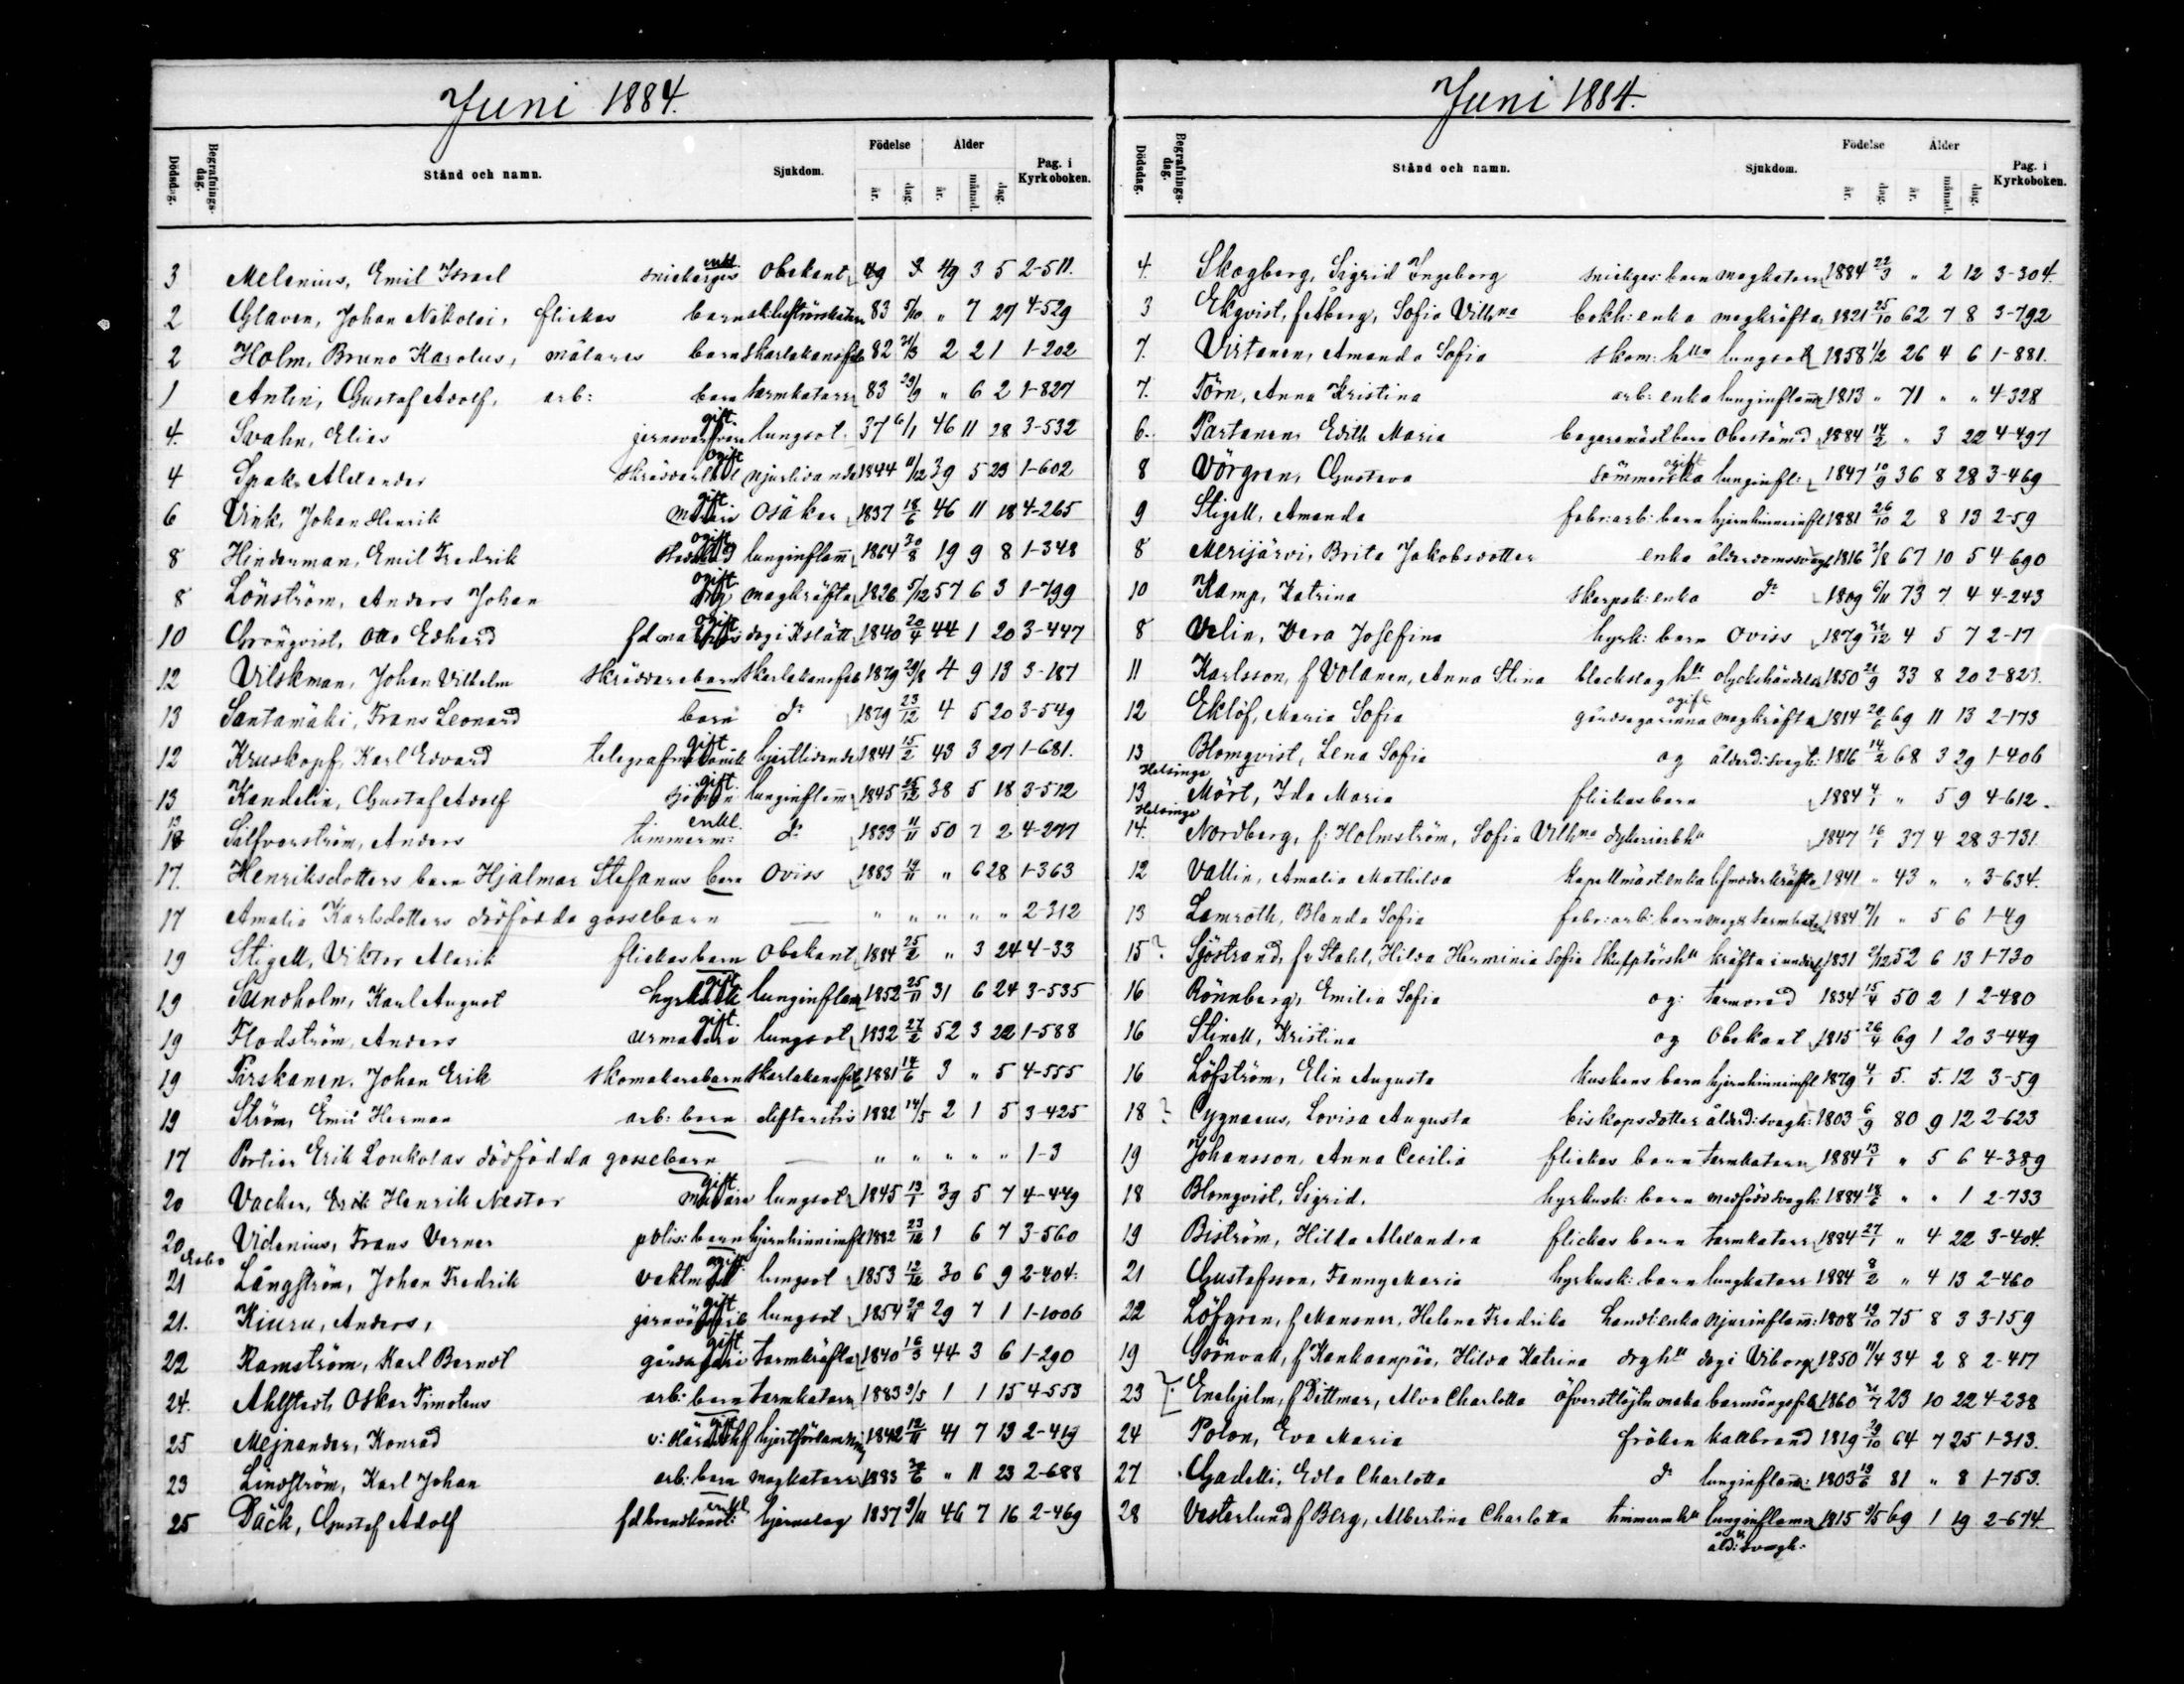 Juni 1884.
Dödsdag. Begrafnings-dag. Stånd och namn. Sjukdom. Födelse år. dag. Ålder år. månad. dag. Pag. i Kyrkoboken.
3 Melenius, Emil Israel snickerges enkl. Obekant 49 3 5 2-511.
2 Glaven, Johan Nikolai, flickas barn 83 5/10 " 7 27 4-529
2 Holm, Bruno Karolus, målares barn skarlakansfeb 82 21/3 2 2 1 1-202
1 Antin, Gustaf Adolf, arb: barn tarmkatarr 83 29/9 " 6 2 1-827
4. Svahn, Elias gift lungsot. 37 6/1 46 11 28 3-532
4 Spak, Alexander ogift njurlidande 1844 11/12 39 5 23 1-602
6 Vink, Johan Henrik gift osäker 1837 18/6 46 11 18 4-265
8 Hinderman, Emil Fredrik ogift lunginflam 1864 30/8 19 9 8 1-348
8 Lönström, Anders Johan ogift drg magkräfta 1826 5/12 57 6 3 1-799
10 Grönqvist, Otto Edvard ogift dog i Kslätt 1840 20/4 44 1 20 3-447
12 Vilskman, Johan Vilhelm skräddare barn skarlakansfeb 1879 29/8 4 9 13 3-187
13 Santamäki, Frans Leonard barn do 1879 23/12 4 5 20 3-549
12 Kruskopf, Karl Edvard gift hjertlidande 1841 15/2 43 3 27 1-681.
13 Kandelin, Gustaf Adolf gift lunginflam 1845 25/12 38 5 18 3-572
13 Silfverström, Anders timmerm: enkl. do 1833 11/11 50 7 2 4-277
17. Henriksdotters barn Hjalmar Stefanus barn Oviss 1883 19/11 " 6 28 1-363
17 Amalia Karlsdotters dödfödda gossebarn — " " " " " 2-312
19 Stigell, Viktor Alarik flickas barn Obekant 1884 25/2 " 3 24 4-33
19 Sundholm, Karl August gift lunginflam 1852 25/11 31 6 24 3-535
19 Flodström, Anders gift. lungsot 1832 27/2 52 3 22 1-588
19 Pirskanen, Johan Erik skomakare barn skarlakansfeb 1881 14/6 3 " 5 4-555
19 Ström, Emil Herman arb: barn difteritis 1882 14/5 2 1 5 3-425
17 Portier Erik Loukolas dödfödda gossebarn — " " " " " 1-3
20 Vacker, Erik Henrik Nestor gift lungsot 1845 13/1 39 5 7 4-449
20 Videnius, Frans Verner polis: barn hjernhinneinfl 1882 23/12 1 6 7 3-560
21 Långström, Johan Fredrik ogift lungsot 1853 12/12 30 6 9 2-404.
21. Kiuru, Anders, gift lungsot 1854 20/11 29 7 1 1-1006
22 Ramström, Karl Berndt gift tarmkräfta 1840 16/3 44 3 6 1-290
24. Ahlstedt, Oskar Timoteus arb: barn tarmkatarr 1883 9/5 1 1 15 4-553
25 Mejnander, Konrad gift hjertförlamning 1842 12/11 41 7 13 2-419
23 Lindström, Karl Johan arb: barn magkatarr 1883 30/6 " 11 23 2-688
25 Bäck, Gustaf Adolf enkl. hjernslag 1837 9/11 46 7 16 2-469
Juni 1884.
Dödsdag. Begrafnings-dag. Stånd och namn. Sjukdom. Födelse år. dag. Ålder år. månad. dag. Pag. i Kyrkoboken.
4. Skogberg, Sigrid Ingeborg barn magkatarr 1884 22/3 " 2 12 3-304.
3 Ekqvist, f Åberg, Sofia Vilhna bokh: enka magkräfta 1821 25/10 62 7 8 3-792
7. Virtanen, Amanda Sofia skom: lungsot 1858 1/2 26 4 6 1-881.
7. Törn, Anna Kristina arb: enka lunginflam 1813 " 71 " " 4-328
6. Partanen, Edith Maria bagaremäst barn Obestämd 1884 14/2 " 3 22 4-497
8 Vörgren, Gustava ogift sömmerska lunginfl: 1847 10/9 36 8 28 3-469
9 Stigell, Amanda fabr: arb: barn hjernhinneinfl 1881 26/10 2 8 13 2-59
8 Merijärvi, Brita Jakobsdotter enka ålderdomssvagh 1816 3/8 67 10 5 4-690
10 Kamp, Katrina enka do 1809 6/11 73 7 4 4-243
8 Velin, Vera Josefina hyrk: barn Oviss 1879 31/12 4 5 7 2-17
11 Karlsson, f Volanen, Anna Stina olyckshändelse 1850 21/9 33 8 20 2-823.
12 Eklöf, Maria Sofia ogift gårdsegarinna magkräfta 1814 20/6 69 11 13 2-173
13 Blomqvist, Lena Sofia og ålderd: svagh: 1816 14/2 68 3 29 1-406
Helsinge
13 Mört, Ida Maria flickas barn 1884 4/1 " 5 9 4-612.
Helsinge
14. Nordberg, f: Holmström, Sofia Vilhna 1847 16/1 37 4 28 3-731.
12 Vallin, Amalia Mathilda Kapellmäst. enka lifmoderkräfta 1841 " 43 " " 3-634.
13 Lamroth, Blanda Sofia fabr: arb: barn mag & tarmkatarr 1884 7/1 " 5 6 1-49
15 ? Sjöstrand, f. Stahl, Hilda Herminia Sofia 1831 2/12 52 6 13 1-730
16 Rönnberg, Emilia Sofia og: tarmvred 1834 15/4 50 2 1 2-480
16 Stinell, Kristina og Obekant 1815 26/4 69 1 20 3-449
16 Löfström, Elin Augusta kuskens barn hjernhinneinfl 1879 4/1 5. 5. 12 3-59
18 ? Cygnaeus, Lovisa Augusta biskopsdotter ålderd: svagh: 1803 6/9 80 9 12 2-623
19 Johansson, Anna Cecilia flickas barn tarmkatarr 1884 13/1 " 5 6 4-389
18 Blomqvist, Sigrid, hyrkusk: barn medfödd svagh: 1884 18/6 " " 1 2-733
19 Biström, Hilda Alexandra flickas barn tarmkatarr 1884 27/1 " 4 22 3-404.
21 Gustafsson, Fanny Maria hyrkusk: barn lungkatarr 1884 8/2 " 4 13 2-460
22 Löfgren, f Mansner, Helena Fredrika handl: enka njurinflam: 1808 19/10 75 8 3 3-159
19 Grönvall, f Kankaanpää, Hilda Katrina dog i Viborg 1850 11/4 34 2 8 2-417
23 ? Enehjelm, f Dittmar, Alva Charlotta öfverstlöjtn maka barnsängsfeb 1860 21/7 23 10 22 4-238
24 Polon, Eva Maria fröken kallbrand 1819 29/10 64 7 25 1-313.
27 Gadelli, Edla Charlotta do lunginflam: 1803 19/6 81 " 8 1-753.
28 Vesterlund f Berg, Albertina Charlotta lunginflam 1815 9/5 69 1 19 2-674.
åld: svagh: